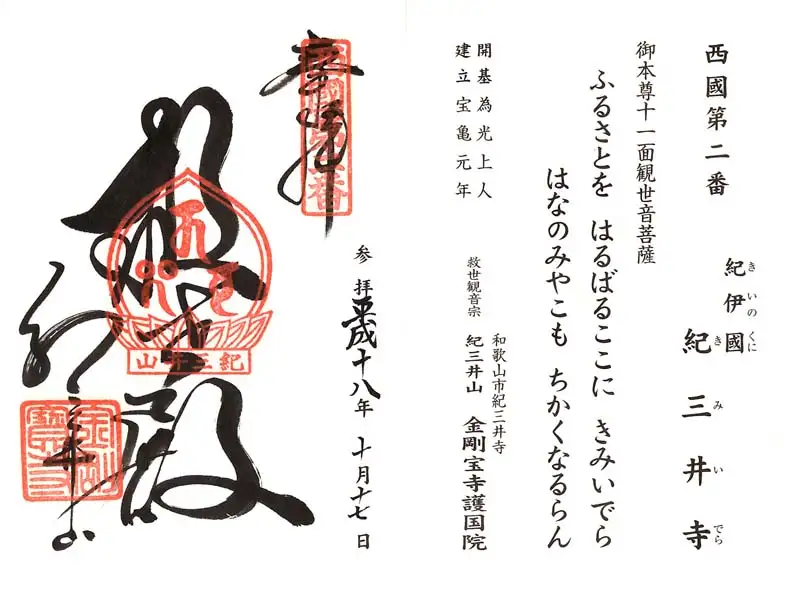 西國第二番
紀伊國
きいのくに
紀三井寺
きみいでら
御本尊十一面観世音菩薩
ふるさとを はるばるここに きみいでら
はなのみやこも ちかくなるらん
開基為光上人
建立宝亀元年
救世観音宗
和歌山市紀三井寺
紀三井山 金剛宝寺護国院
参拝 平成十八年 十月十七日
奉拝
西國第二番
救世殿
紀三井山
紀三井山
金剛寳寺